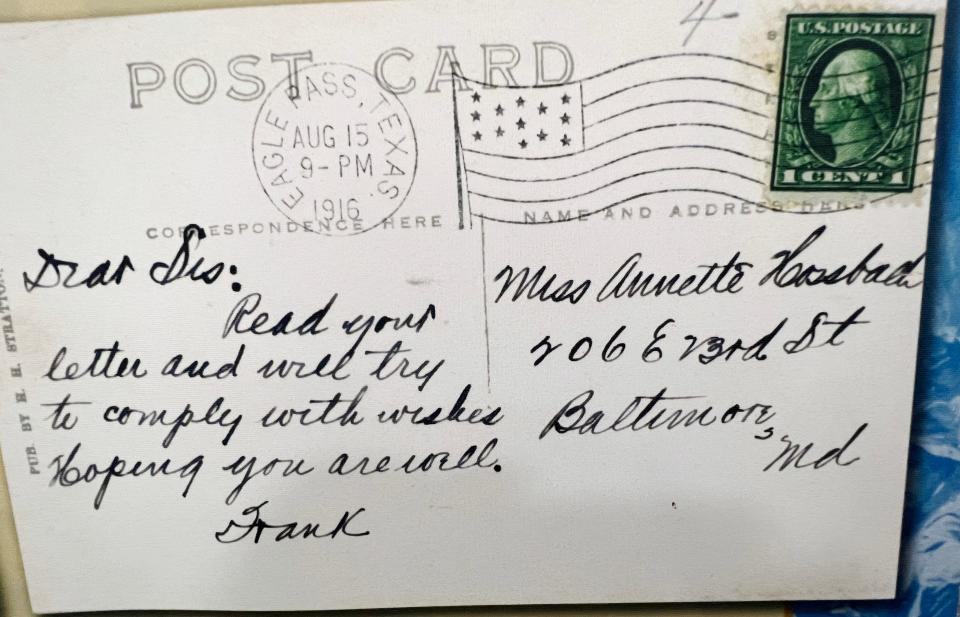 4-
POST CARD
U.S. POSTAGE
1 CENT 1
EAGLE PASS, TEXAS.
AUG 15
9-PM
1916
CORRESPONDENCE HERE
NAME AND ADDRESS HERE
PUB. BY H. H. STRATTON,
Dear Sis:
Read your
letter and will try
to comply with wishes
Hoping you are well.
Frank
Miss Annette Hossbach
206 E 23rd St
Baltimore,
Md